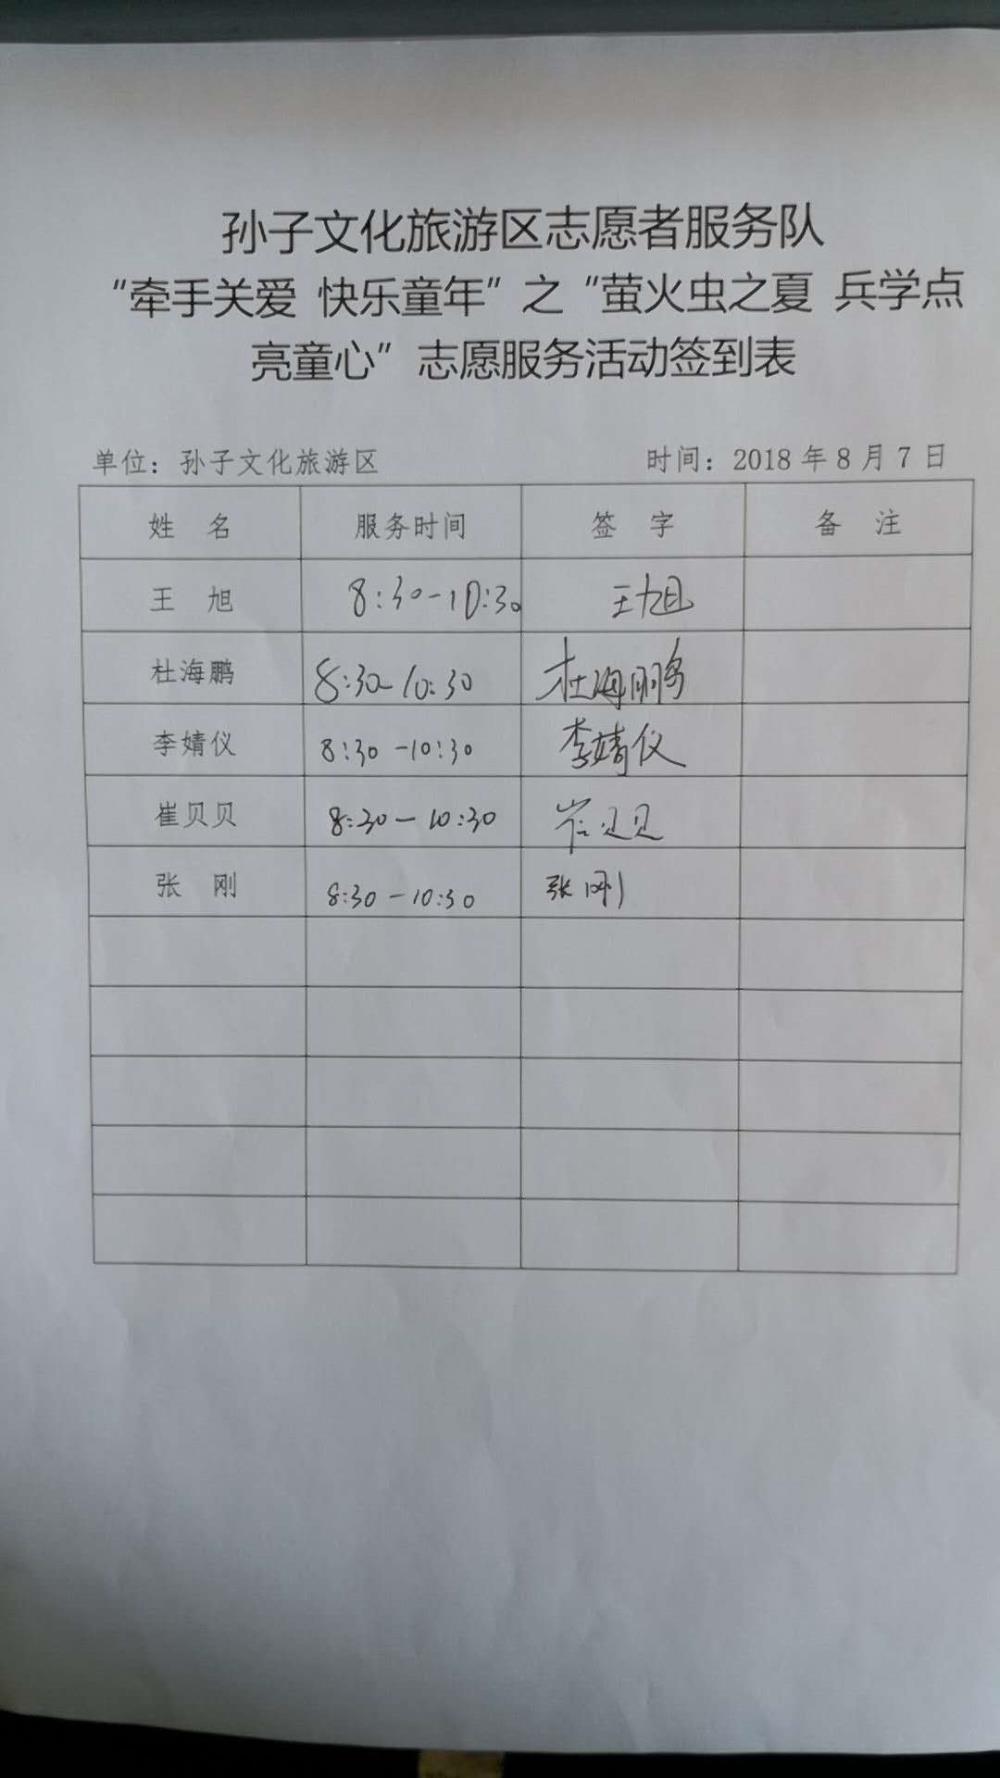 孙子文化旅游区志愿者服务队
“牵手关爱 快乐童年”之“萤火虫之夏 兵学点
亮童心”志愿服务活动签到表
单位：孙子文化旅游区 时间：2018年8月7日
姓 名 服务时间 签 字 备 注
王 旭 8:30-10:30 王旭
杜海鹏 8:30-10:30 杜海鹏
李婧仪 8:30-10:30 李婧仪
崔贝贝 8:30-10:30 崔贝贝
张 刚 8:30-10:30 张刚